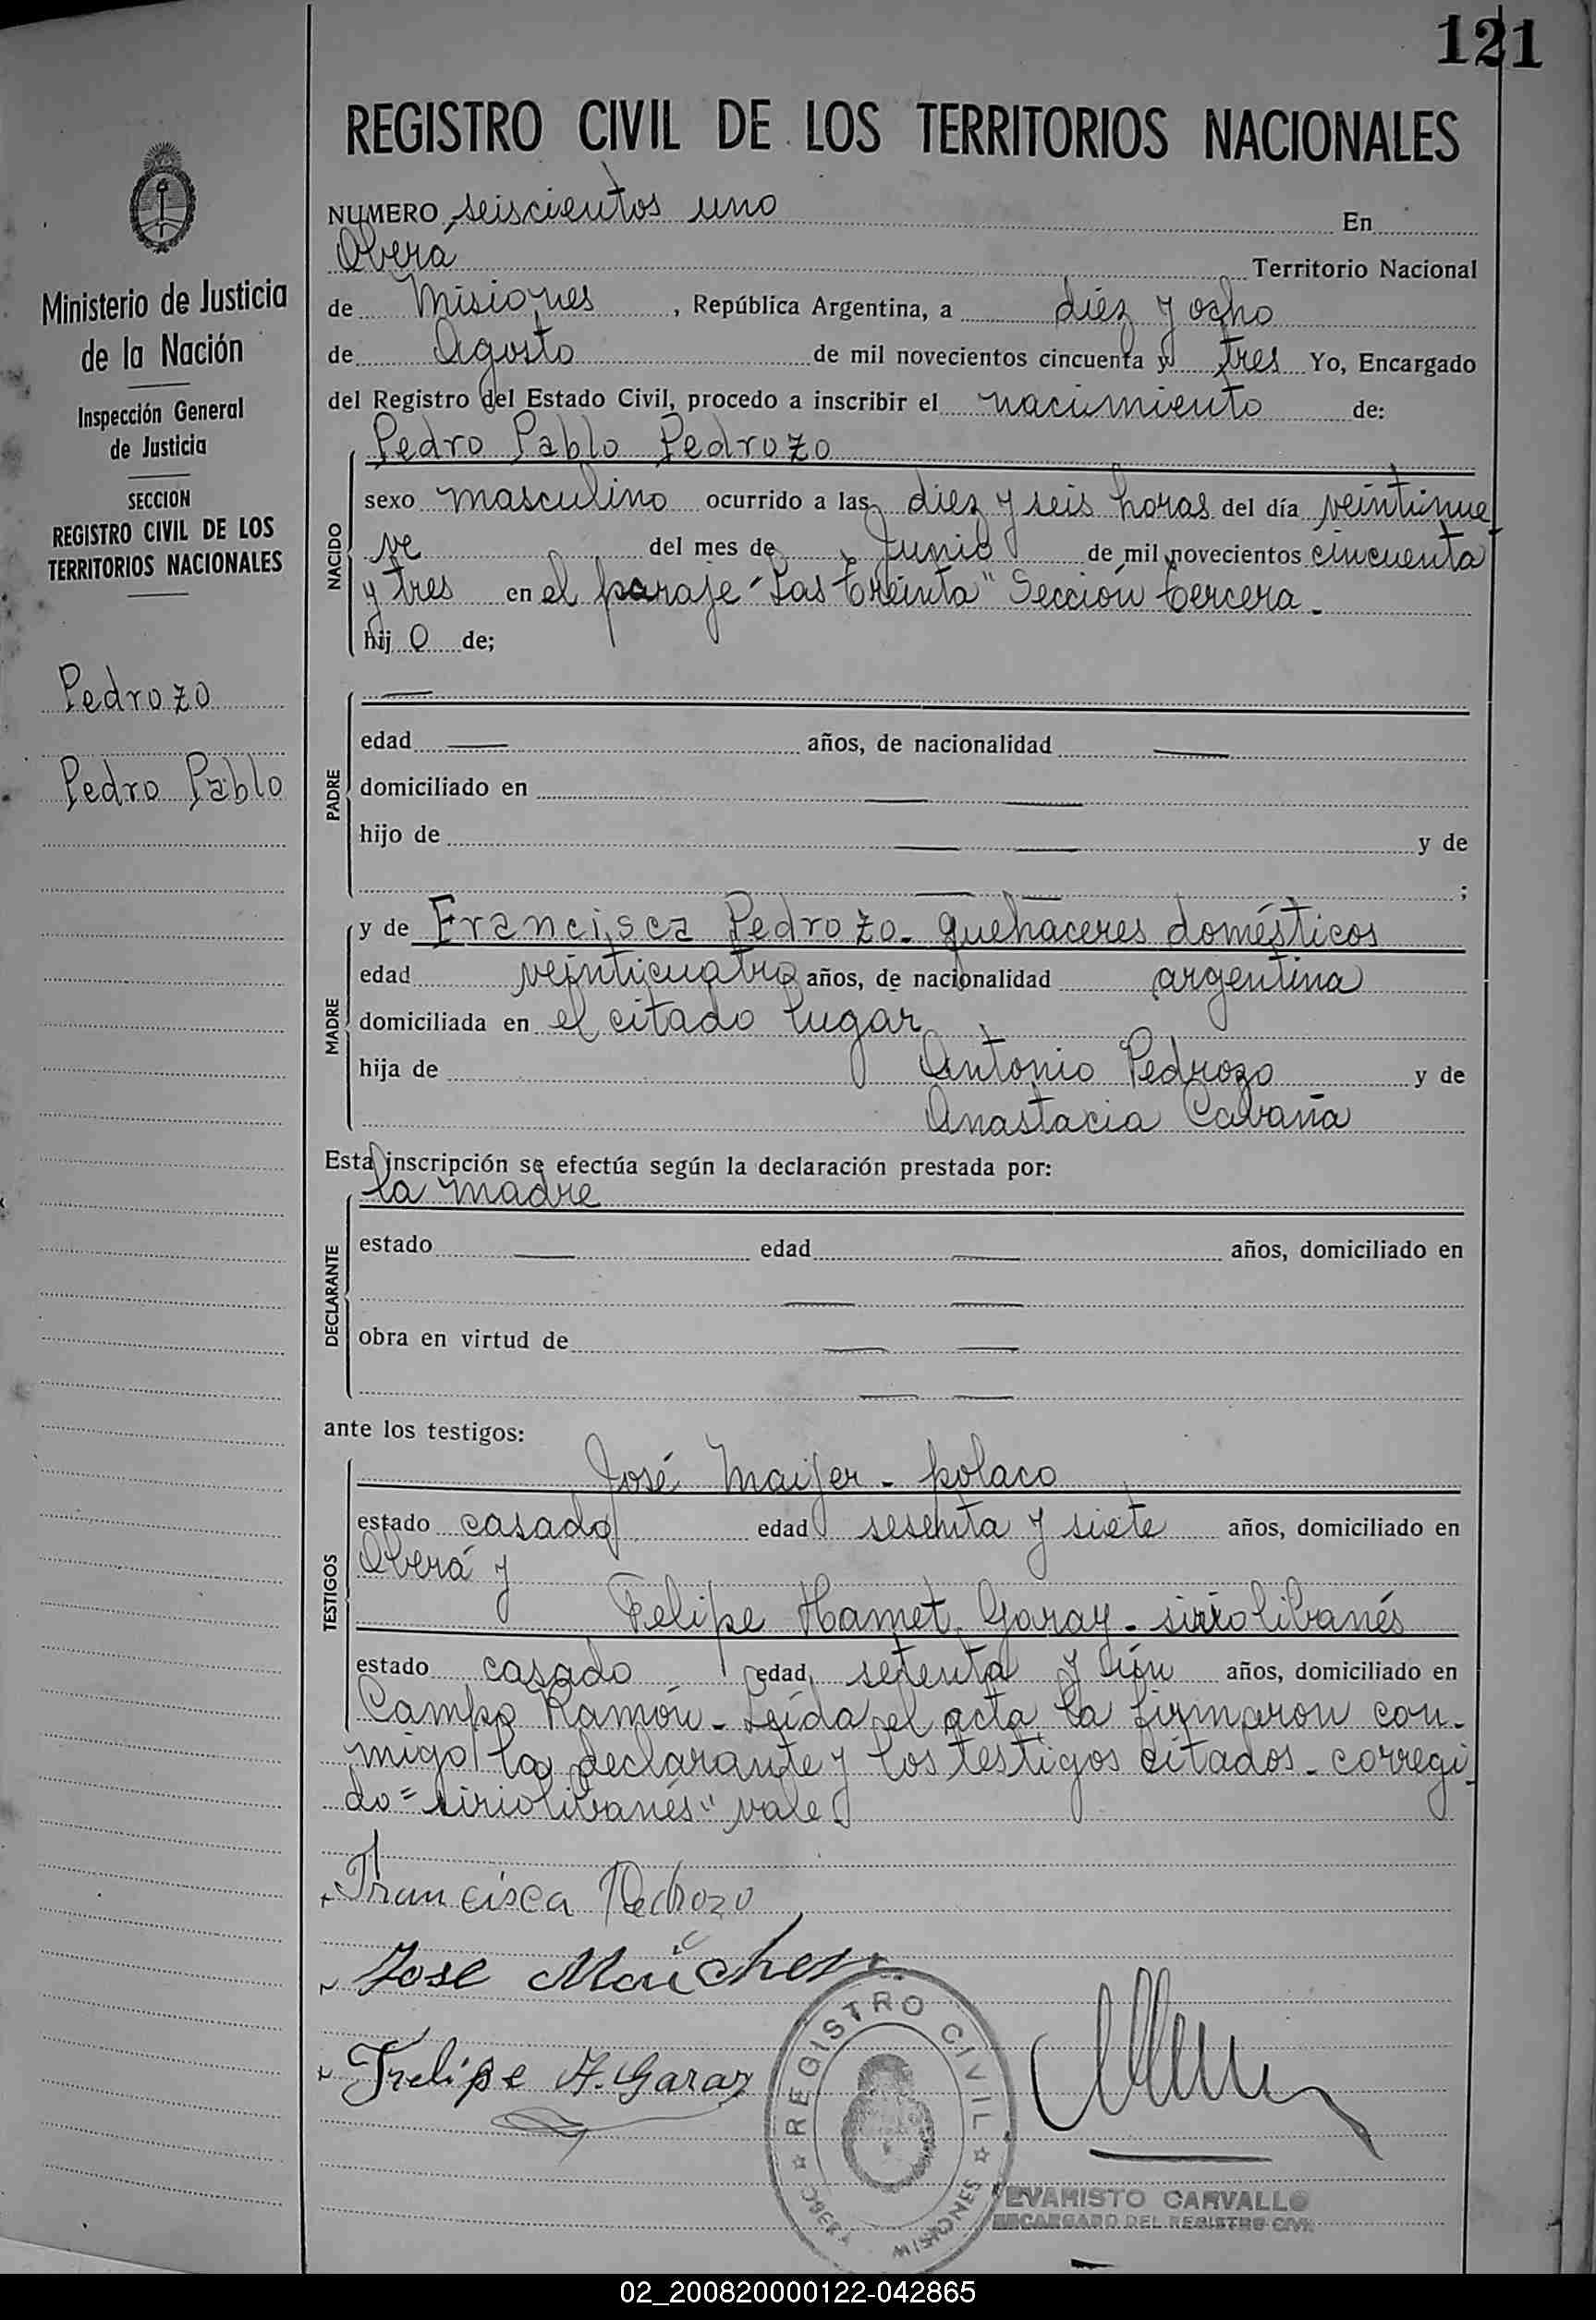 121
REGISTRO CIVIL DE LOS TERRITORIOS NACIONALES
Ministerio de Justicia
de la Nación
Inspección General
de Justicia
SECCION
REGISTRO CIVIL DE LOS
TERRITORIOS NACIONALES
Pedrozo
Pedro Pablo
NUMERO seiscientos uno En
Oberá Territorio Nacional
de Misiones, República Argentina, a diez y ocho
de Agosto de mil novecientos cincuenta y tres Yo, Encargado
del Registro del Estado Civil, procedo a inscribir el nacimiento de:
NACIDO
Pedro Pablo Pedrozo
sexo masculino ocurrido a las diez y seis horas del día veintinue
ve del mes de Junio de mil novecientos cincuenta
y tres en el paraje "Las Treinta" Sección tercera.
hijo de;
PADRE
edad años, de nacionalidad
domiciliado en
hijo de y de
;
MADRE
y de Francisca Pedrozo. quehaceres domésticos
edad veinticuatro años, de nacionalidad argentina
domiciliada en el citado lugar
hija de Antonio Pedrozo y de
Anastacia Cabaña
Esta inscripción se efectúa según la declaración prestada por:
DECLARANTE
la madre
estado edad años, domiciliado en
obra en virtud de
ante los testigos:
TESTIGOS
José Maijer - polaco
estado casado edad sesenta y siete años, domiciliado en
Oberá y
Felipe Hamet Garay - siriolibanés
estado casado edad setenta y un años, domiciliado en
Campo Ramón - Leída el acta la firmaron con-
migo la declarante y los testigos citados - corregi-
do "siriolibanés" vale
Francisca Pedrozo
Jose Maicher
Felipe H. Garay
REGISTRO CIVIL
MISIONES
EVARISTO CARVALLO
ENCARGADO DEL REGISTRO CIVIL
02_200820000122-042865